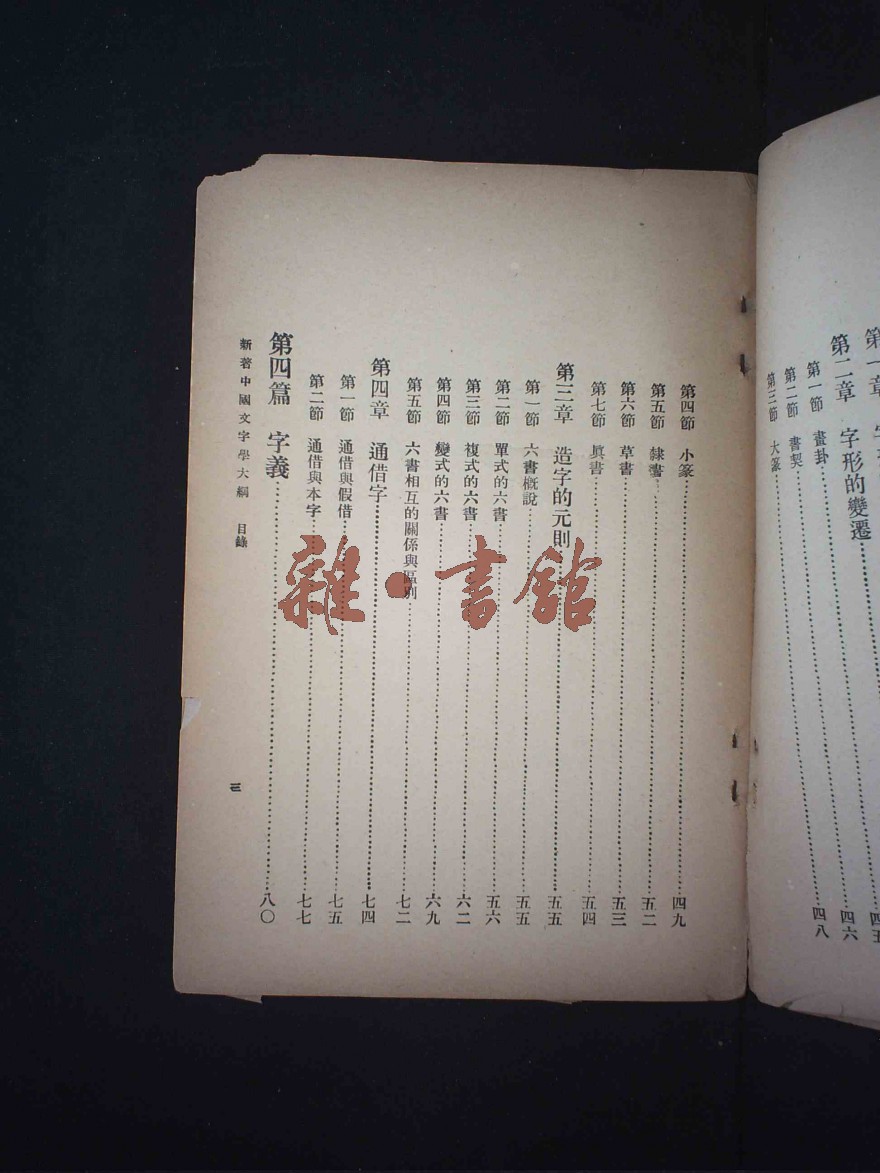 第一章
第二章 字形的變遷
第一節 畫卦 四五
第二節 書契 四六
第三節 大篆 四八
第四節 小篆 四九
第五節 隸書 五二
第六節 草書 五三
第七節 眞書 五四
第三章 造字的元則 五五
第一節 六書槪說 五五
第二節 單式的六書 五六
第三節 複式的六書 六二
第四節 變式的六書 六九
第五節 六書相互的關係與區別 七二
第四章 通借字 七四
第一節 通借與假借 七五
第二節 通借與本字 七七
第四篇 字義 八〇
新著中國文字學大綱 目錄
三
雜·書館